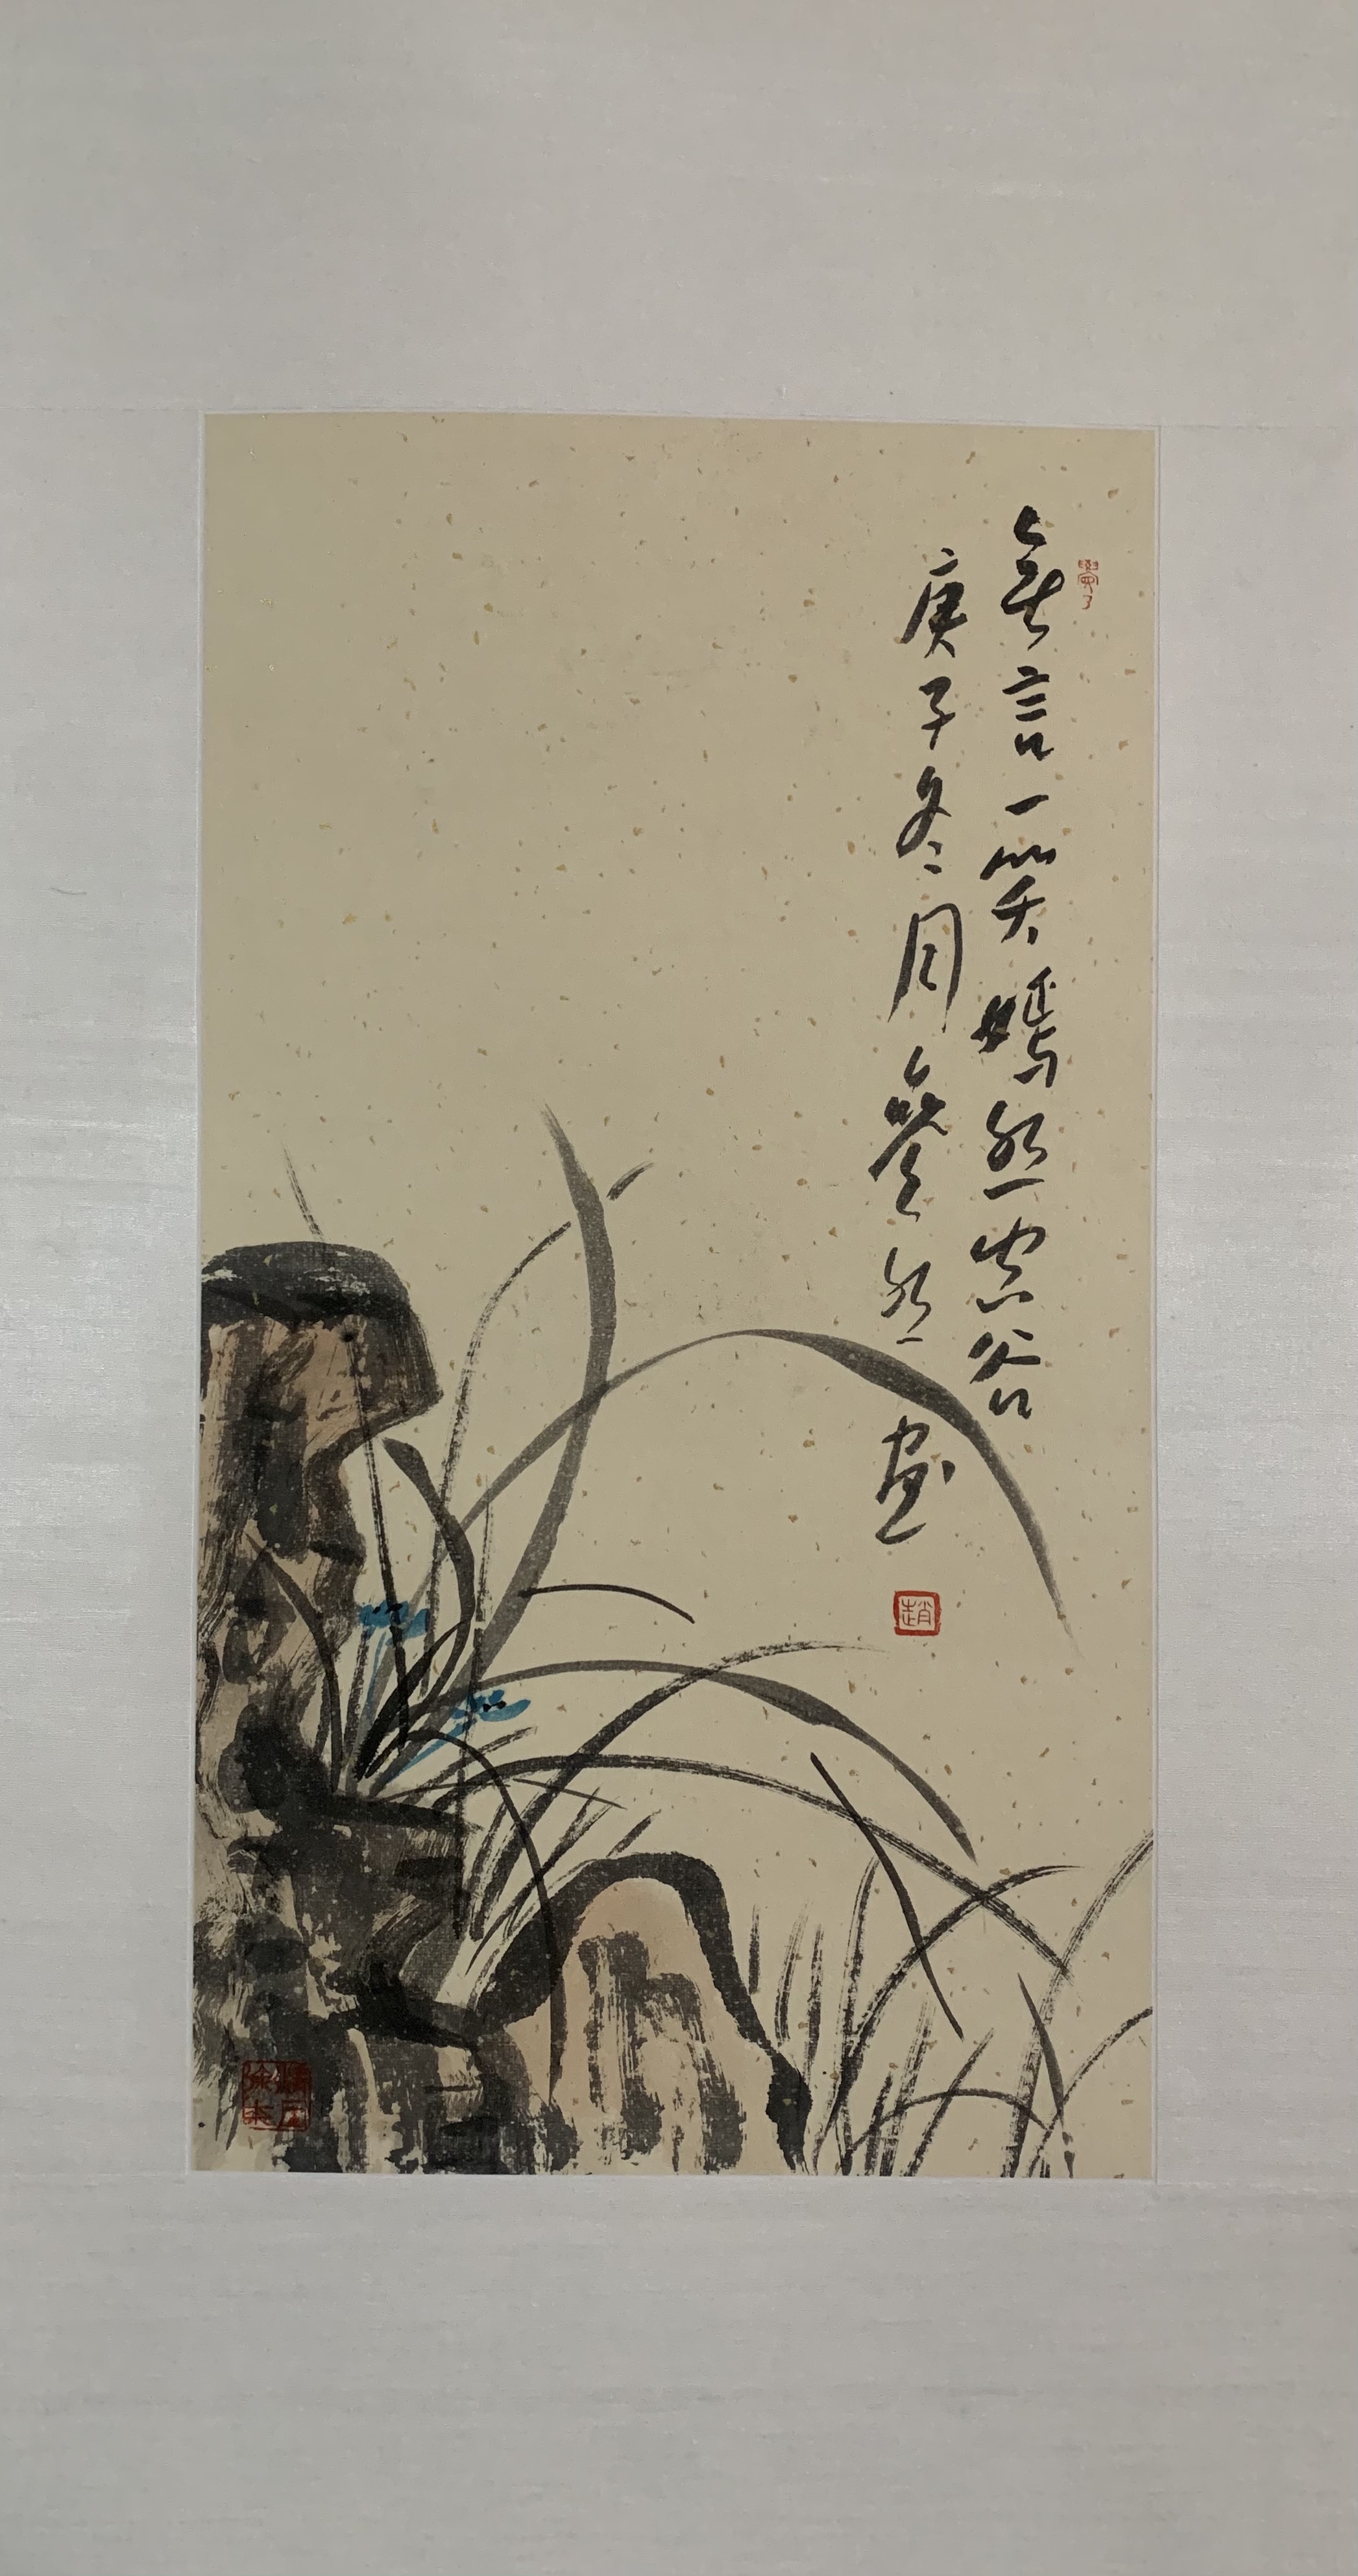 無言一笑嫣然空谷
庚子冬月誉然画
趙